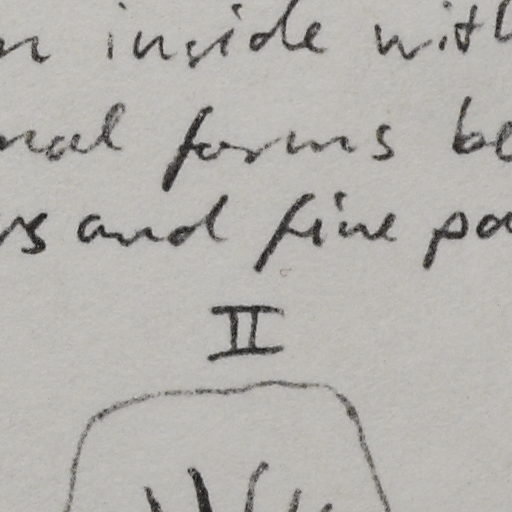 n inside with
nal forms be
rs and fine pa
II